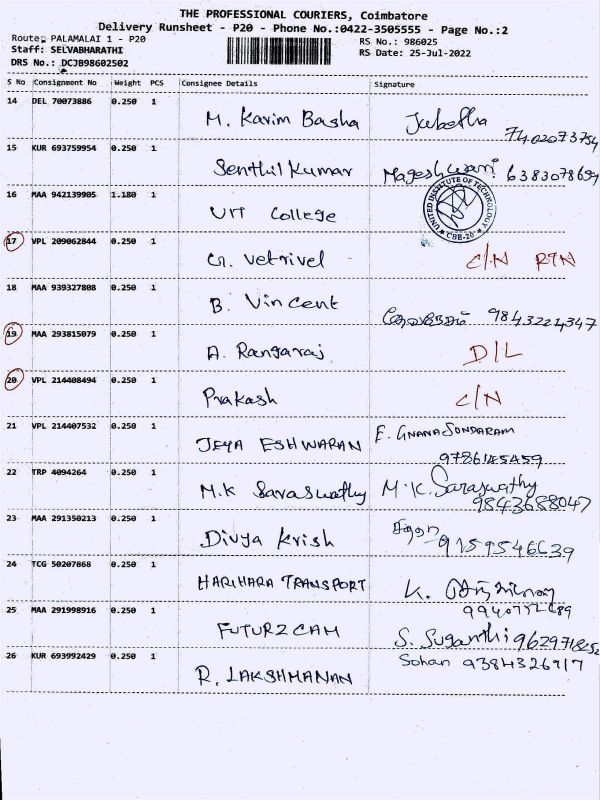 THE PROFESSIONAL COURIERS, Coimbatore
Delivery Runsheet - P20 - Phone No.:0422-3505555 - Page No.:2
Route: PALAMALAI 1 - P20 RS No.: 986025
Staff: SELVABHARATHI RS Date: 25-Jul-2022
DRS No.: DCJB98602502
S No Consignment No Weight PCS Consignee Details Signature
14 DEL 70073886 0.250 1 M. Karim Basha 7402073754
15 KUR 693759954 0.250 1 Senthil Kumar Mageshwari 6383078699
16 MAA 942139905 1.180 1 UIT College UNITED INSTITUTE OF TECHNOLOGY CBE-20
17 VPL 209062844 0.250 1 G. Vetrivel C/N RTN
18 MAA 939327808 0.250 1 B. Vincent 9843224347
19 MAA 293815079 0.250 1 A. Rangaraj D/L
20 VPL 214408494 0.250 1 Prakash C/N
21 VPL 214407532 0.250 1 JEYA ESHWARAN E. GNANASUNDARAM
9786145459
22 TRP 4094264 0.250 1 M.K Saraswathy M.K. Saraswathy
9843688047
23 MAA 291350213 0.250 1 Divya Krish 9159546639
24 TCG 50207868 0.250 1 HARIHARA TRANSPORT K.
25 MAA 291998916 0.250 1 FUTURZCAM S. Suganthi 9629718252
26 KUR 693992429 0.250 1 R. LAKSHMANAN Sohan 9384326917